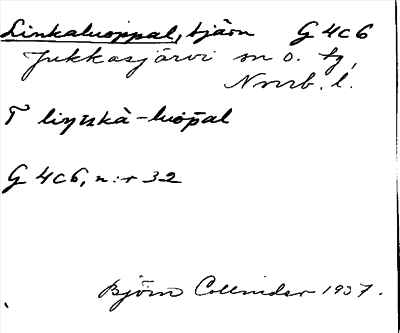 Linkaluoppal, tjärn G 4c6
Jukkasjärvi sn o. tg,
Norrb. l.
T liŋʹkà-luo͔p̄al
G 4c6, n:r 32
Björn Collinder 1937.